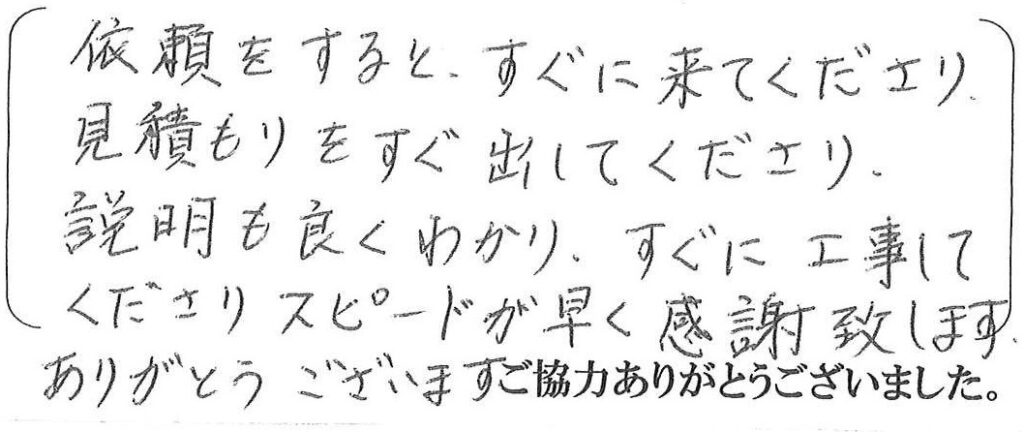 依頼をすると、すぐに来てくださり、
見積もりをすぐ出してくださり、
説明も良くわかり、すぐに工事して
くださりスピードが早く感謝致します。
ありがとうございますご協力ありがとうございました。